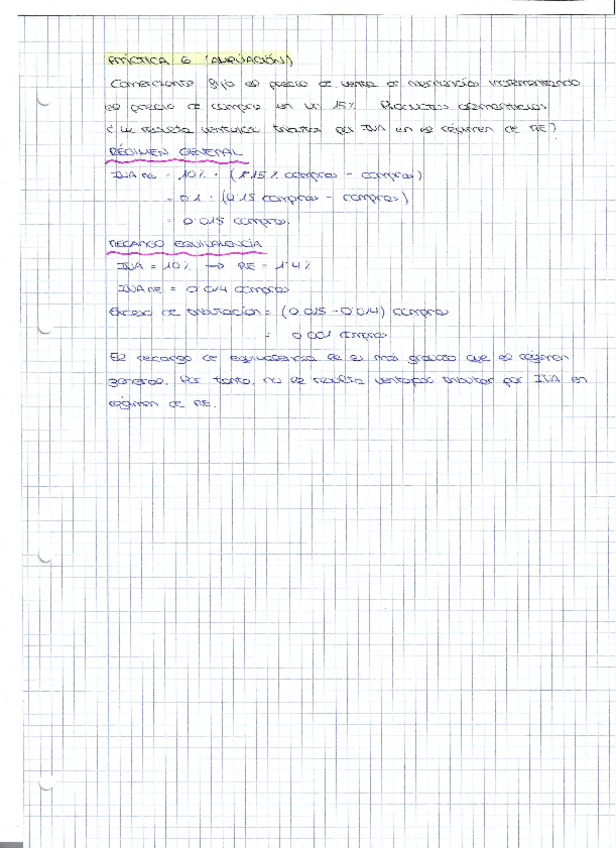 PRÁCTICA 6 (AMPLIACIÓN)
Comerciante fija el precio de venta de mercancías incrementando
el precio de compra en un 15% Productos alimenticios
¿Le resulta ventajoso tributar por IVA en el régimen de RE?
RÉGIMEN GENERAL
IVA RG = 10% · (1'15% compras - compras)
= 0'1 · (0'15 compras - compras)
= 0'015 compras.
RECARGO EQUIVALENCIA
IVA = 10% → RE = 1'4%
IVA RE = 0'014 compras
Exceso de tributación = (0'015 - 0'014) compras
= 0'001 compras
El recargo de equivalencia le es más gravoso que el régimen
general. Por tanto, no le resulta ventajoso tributar por IVA en
régimen de RE.